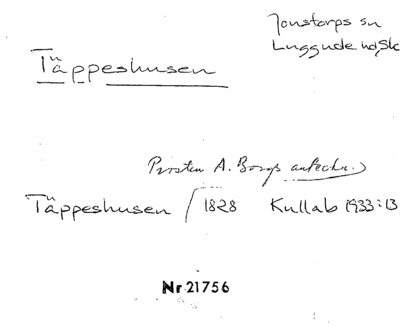 Jonstorps sn
Luggude hd, Sk
Täppeshusen
Prosten A. Borgs anteckn.)
Täppeshusen / 1828 Kullab 1933:13
Nr 21756